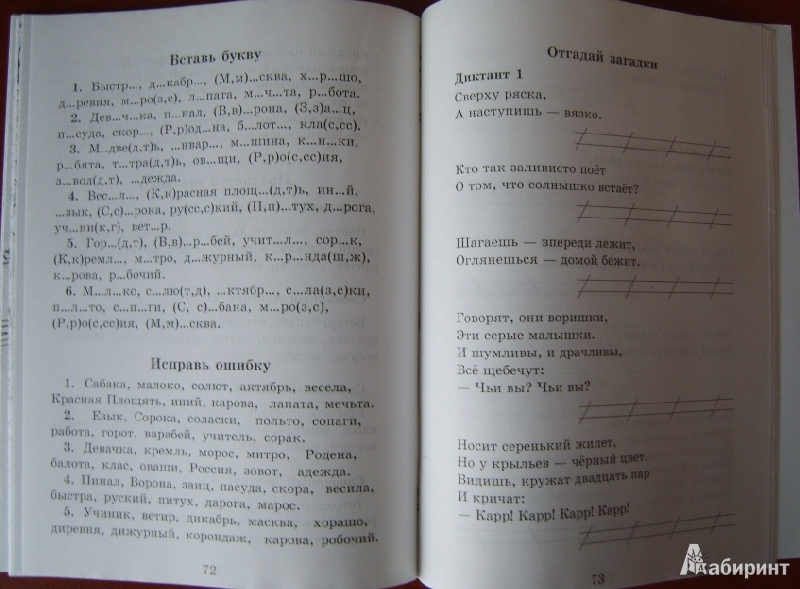 Вставь букву
1. Быстр..., д...кабр..., (М,м)...сква, х...р...шо,
д...ревня, м...ро(з,с), л...пата, м...ч...та, р...бота.
2. Дев...ч...ка, п...нал, (В,в)...рона, (З,з)а...ц,
п...суда, скор..., (Р,р)од...на, б...лот..., кла(с,сс).
3. М...две(д,т)ь, ...нвар..., м...шина, к...н...ки,
р...бята, т...тра(д,т)ь, ов...щи, (Р,р)о(с,сс)ия,
з...вод(д,т), ...дежда.
4. Вес...л..., (К,к)расная площ...(д,т)ь, ин...й,
...зык, (С,с)...рока, ру(сс,с)кий, (П,п)...тух, д...рога,
уч...ни(к,г), вет...р.
5. Гор...(д,т), (В,в)...р...бей, учит...л..., сор...к,
(К,к)ремл..., м...тро, д...журный, к...р...нда(ш,ж),
к...рова, р...бочий.
6. М...л...кс, с...лю(т,д), ...ктябр..., с...ла(з,с)ки,
п...л...то, с...п...ги, (С, с)...бака, м...ро(з,с),
(Р,р)о(с,сс)ия, (М,м)...сква.
Исправь ошибку
1. Сабака, малоко, солют, актябрь, весела,
Красная Площять, иний, карова, лапата, мечьта.
2. Езык, Сорока, соласки, польто, сопаги,
работа, горот, варабей, учитель, сорак.
3. Девачка, кремль, морос, митро, Родена,
балота, клас, оващи, Россия, зовот, адежда.
4. Пинал, Ворона, заиц, пасуда, скора, весила,
быстра, руский, питух, дарога, марос.
5. Учиник, ветир, дикабрь, масква, хорашо,
диревня, дижурный, корондаж, карова, робочий.
72
Отгадай загадки
Диктант 1
Сверху ряска,
А наступишь — вязко.
Кто так заливисто поёт
О том, что солнышко встаёт?
Шагаешь — впереди лежит,
Оглянешься — домой бежит.
Говорят, они воришки,
Эти серые малышки.
И шумливы, и драчливы,
Всё щебечут:
— Чьи вы? Чьи вы?
Носит серенький жилет,
Но у крыльев — чёрный цвет.
Видишь, кружат двадцать пар
И кричат:
— Карр! Карр! Карр! Карр!
73
Лабиринт